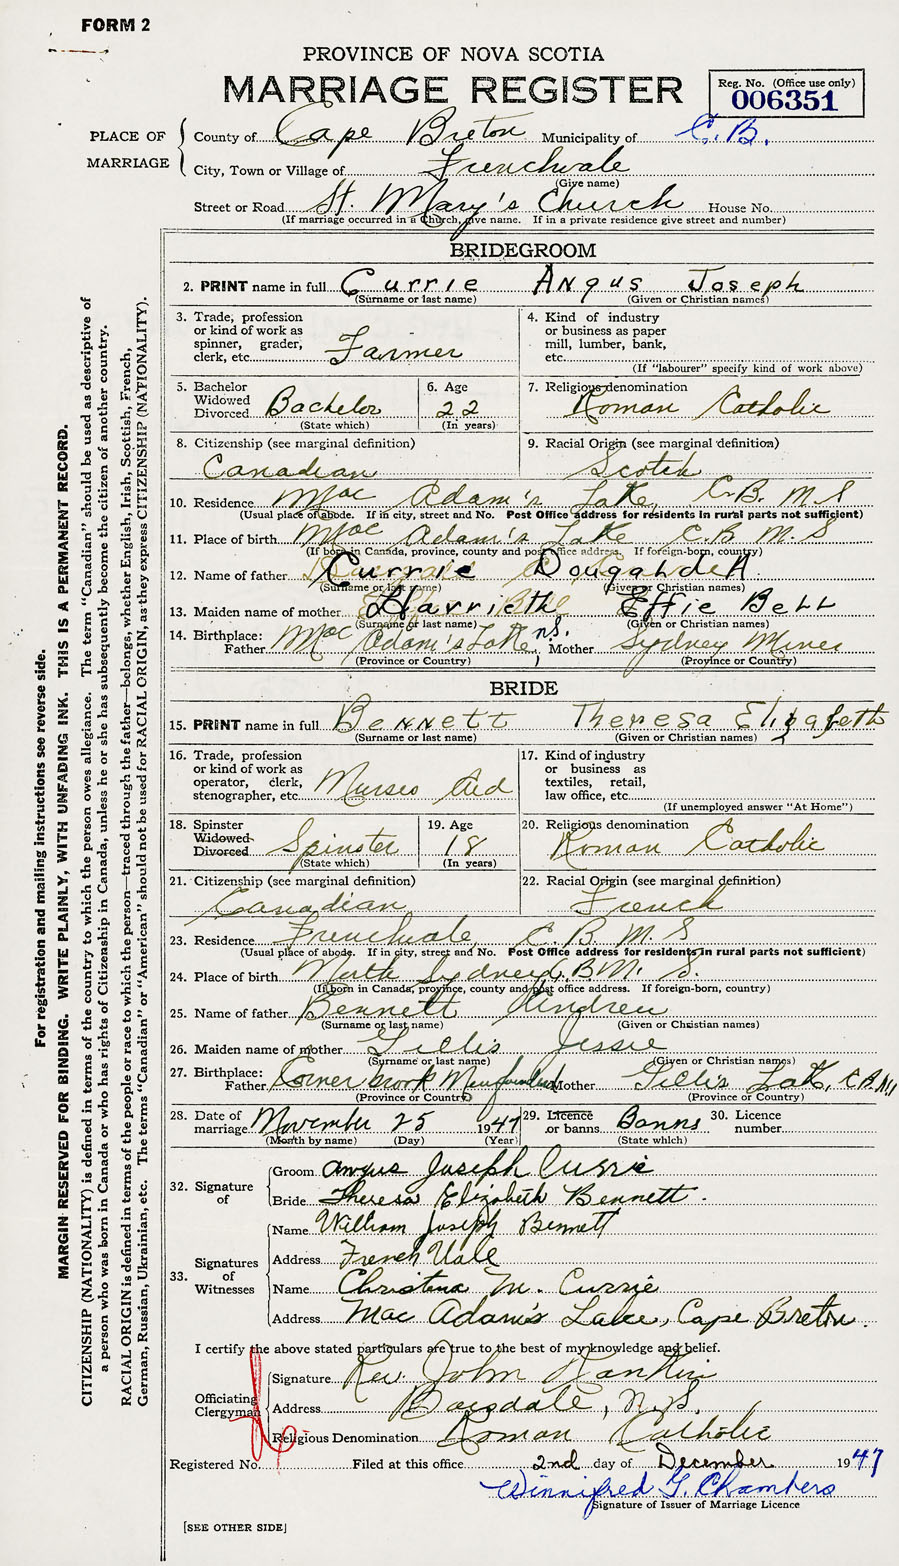 FORM 2
PROVINCE OF NOVA SCOTIA
MARRIAGE REGISTER
Reg. No. (Office use only)
006351
PLACE OF MARRIAGE
County of Cape Breton Municipality of C.B.
City, Town or Village of Frenchvale
(Give name)
Street or Road St. Mary's Church House No.
(If marriage occurred in a Church, give name. If in a private residence give street and number)
BRIDEGROOM
2. PRINT name in full Currie Angus Joseph
(Surname or last name) (Given or Christian names)
3. Trade, profession
or kind of work as
spinner, grader,
clerk, etc. Farmer
4. Kind of industry
or business as paper
mill, lumber, bank,
etc.
(If "labourer" specify kind of work above)
5. Bachelor
Widowed
Divorced Bachelor
(State which)
6. Age
22
(In years)
7. Religious denomination
Roman Catholic
8. Citizenship (see marginal definition)
Canadian
9. Racial Origin (see marginal definition)
Scotch
10. Residence Mac Adam's Lake, C.B. N.S
(Usual place of abode. If in city, street and No. Post Office address for residents in rural parts not sufficient)
11. Place of birth Mac Adam's Lake C.B N.S
(If born in Canada, province, county and post office address. If foreign-born, country)
12. Name of father Currie
(Surname or last name) (Given or Christian names)
13. Maiden name of mother Effie Bell
(Surname or last name) (Given or Christian names)
14. Birthplace:
Father Mac Adam's Lake, N.S. Mother Sydney Mines
(Province or Country) (Province or Country)
BRIDE
15. PRINT name in full Bennett Theresa Elizabeth
(Surname or last name) (Given or Christian names)
16. Trade, profession
or kind of work as
operator, clerk,
stenographer, etc. Nurses Aid
17. Kind of industry
or business as
textiles, retail,
law office, etc.
(If unemployed answer "At Home")
18. Spinster
Widowed
Divorced Spinster
(State which)
19. Age
18
(In years)
20. Religious denomination
Roman Catholic
21. Citizenship (see marginal definition)
Canadian
22. Racial Origin (see marginal definition)
French
23. Residence Frenchvale, C.B N.S
(Usual place of abode. If in city, street and No. Post Office address for residents in rural parts not sufficient)
24. Place of birth North Sydney C.B N. S.
(If born in Canada, province, county and post office address. If foreign-born, country)
25. Name of father Bennett Andrew
(Surname or last name) (Given or Christian names)
26. Maiden name of mother Gillis Jessie
(Surname or last name) (Given or Christian names)
27. Birthplace:
Father Corner brook Newfoundland Mother Gillis Lake, C.B.N.S
(Province or Country) (Province or Country)
28. Date of
marriage November 25 1947
(Month by name) (Day) (Year)
29. Licence
or banns Banns
(State which)
30. Licence
number
32. Signature
of
Groom Angus Joseph Currie
Bride Theresa Elizabeth Bennett.
33. Signatures
of
Witnesses
Name William Joseph Bennett
Address French Vale
Name Christina M. Currie
Address Mac Adam's Lake, Cape Breton.
I certify the above stated particulars are true to the best of my knowledge and belief.
Officiating
Clergyman
Signature Rev. John Rankin
Address Boisdale, N.S.
Religious Denomination Roman Catholic
Registered No. Filed at this office 2nd day of December 1947
Winnifred G. Chambers
Signature of Issuer of Marriage Licence
[SEE OTHER SIDE]
For registration and mailing instructions see reverse side.
MARGIN RESERVED FOR BINDING. WRITE PLAINLY, WITH UNFADING INK. THIS IS A PERMANENT RECORD.
CITIZENSHIP (NATIONALITY) is defined in terms of the country to which the person owes allegiance. The term "Canadian" should be used as descriptive of
a person who was born in Canada or who has rights of Citizenship in Canada, unless he or she has subsequently become the citizen of another country.
RACIAL ORIGIN is defined in terms of the people or race to which the person—traced through the father—belongs, whether English, Irish, Scottish, French,
German, Russian, Ukrainian, etc. The terms "Canadian" or "American" should not be used for RACIAL ORIGIN, as they express CITIZENSHIP (NATIONALITY).